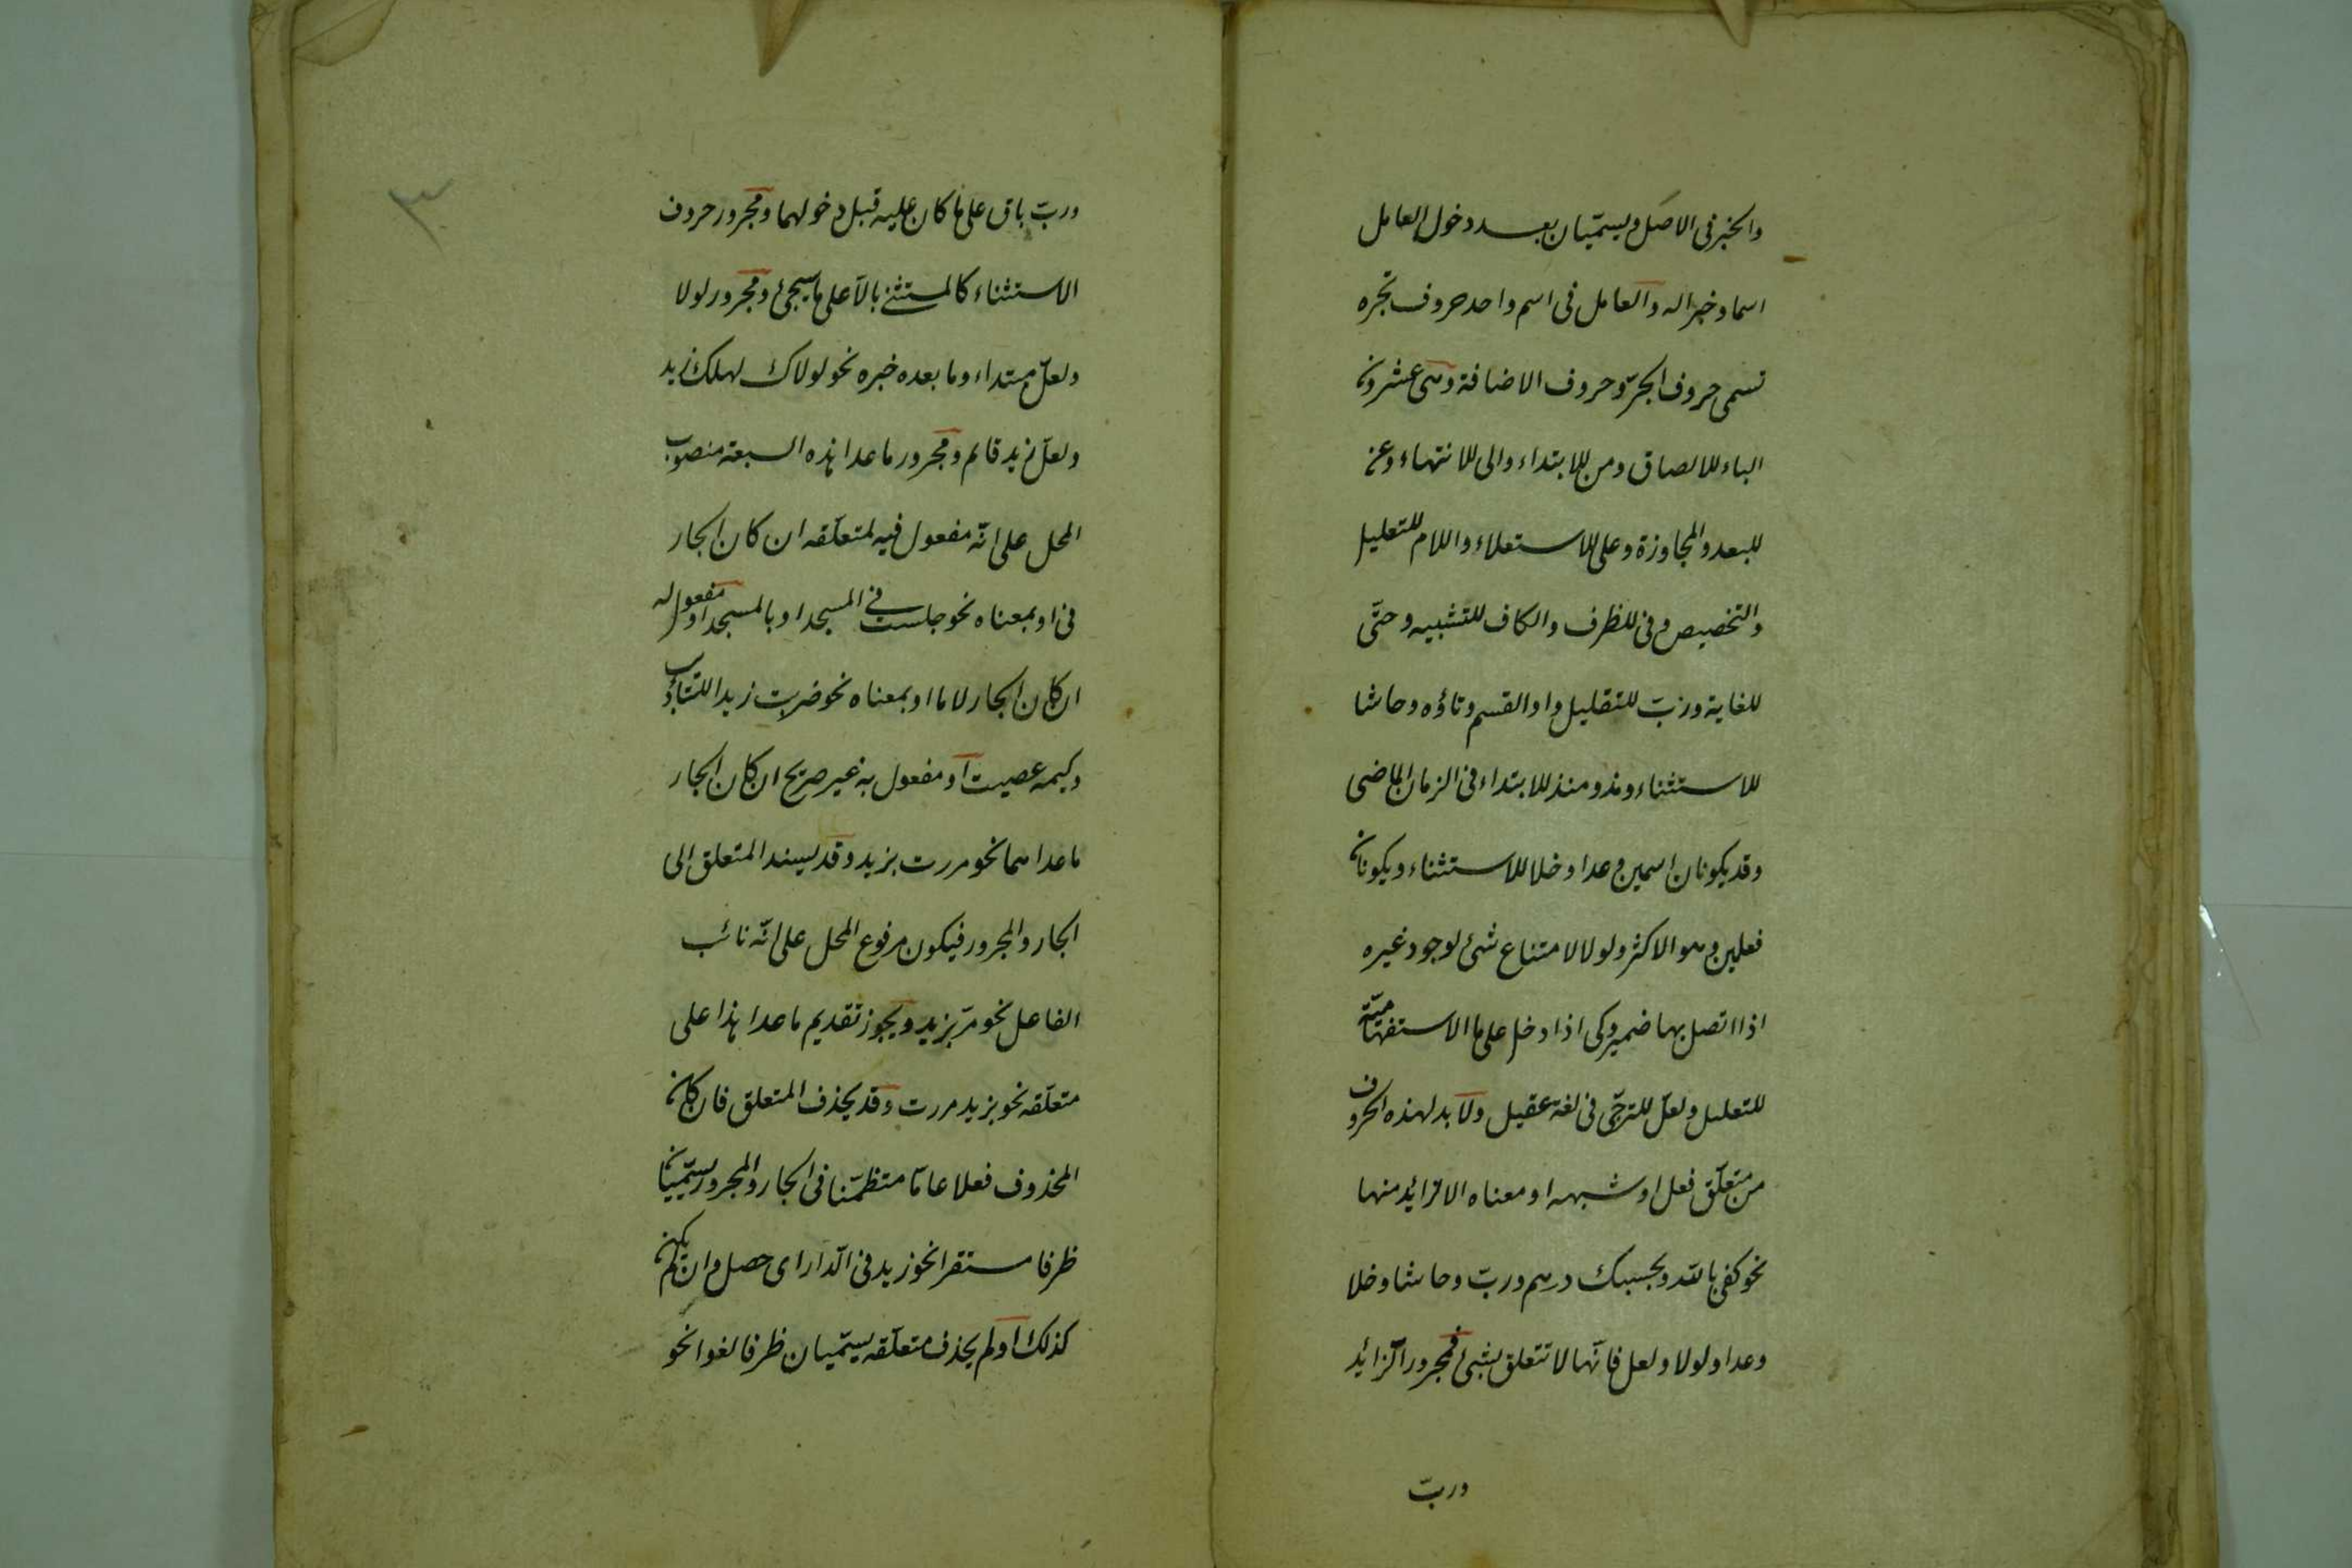 والخبر فى الاصل ويسمّيان بعد دخول العامل
اسما وخبرا له والعامل فى اسم واحد حروف تجره
تسمى حروف الجرّ وحروف الاضافة وهى عشرون
الباء للالصاق ومن للابتداء والى للانتهاء وعن
للبعد والمجاوزة وعلى للاستعلاء واللام للتعليل
والتخصيص وفى للظرف والكاف للتشبيه وحتّى
للغاية وربّ للتقليل واو القسم وتاؤه وحاشا
للاستثناء ومذ ومنذ للابتداء فى الزمان الماضى
وقد يكونان اسمين وعدا وخلا للاستثناء ويكونان
فعلين وهو الاكثر ولولا لامتناع شئ لوجود غيره
اذا اتصل بها ضمير وكى اذا دخل على ما الاستفهاميّة
للتعليل ولعلّ للترجّى فى لغة عقيل ولا بد لهذه الحروف
من متعلّق فعل او شبهه او معناه الا الزائد منها
نحو كفى بالله وبحسبك درهم وربّ وحاشا وخلا
وعدا ولولا ولعل فانّها لا تتعلق بشئ فمجرور الزائد
وربّ
٣
وربّ باق على ما كان عليه قبل دخولهما ومجرور حروف
الاستثناء كالمستثنى بالّا على ما سيجئ ومجرور لولا
ولعلّ مبتداء وما بعده خبره نحو لولاك لهلك زيد
ولعلّ زيد قائم ومجرور ما عدا هذه السبعة منصوب
المحل على انّه مفعول فيه لمتعلّقه ان كان الجار
فى او بمعناه نحو جلست فى المسجد او بالمسجد او مفعول له
ان كان الجار لاما او بمعناه نحو ضربت زيدا للتأديب
وكيمه عصيت او مفعول به غير صريح ان كان الجار
ما عداهما نحو مررت بزيد وقد يسند المتعلق الى
الجار والمجرور فيكون مرفوع المحل على انّه نائب
الفاعل نحو مرّ بزيد ويجوز تقديم ما عدا هذا على
متعلّقه نحو بزيد مررت وقد يحذف المتعلق فان كان
المحذوف فعلا عامّا متظمّنا فى الجار والمجرور يسمّيان
ظرفا مستقرا نحو زيد فى الدّار اى حصل وان لم يكن
كذلك او لم يحذف متعلّقه يسمّيان ظرفا لغوا نحو